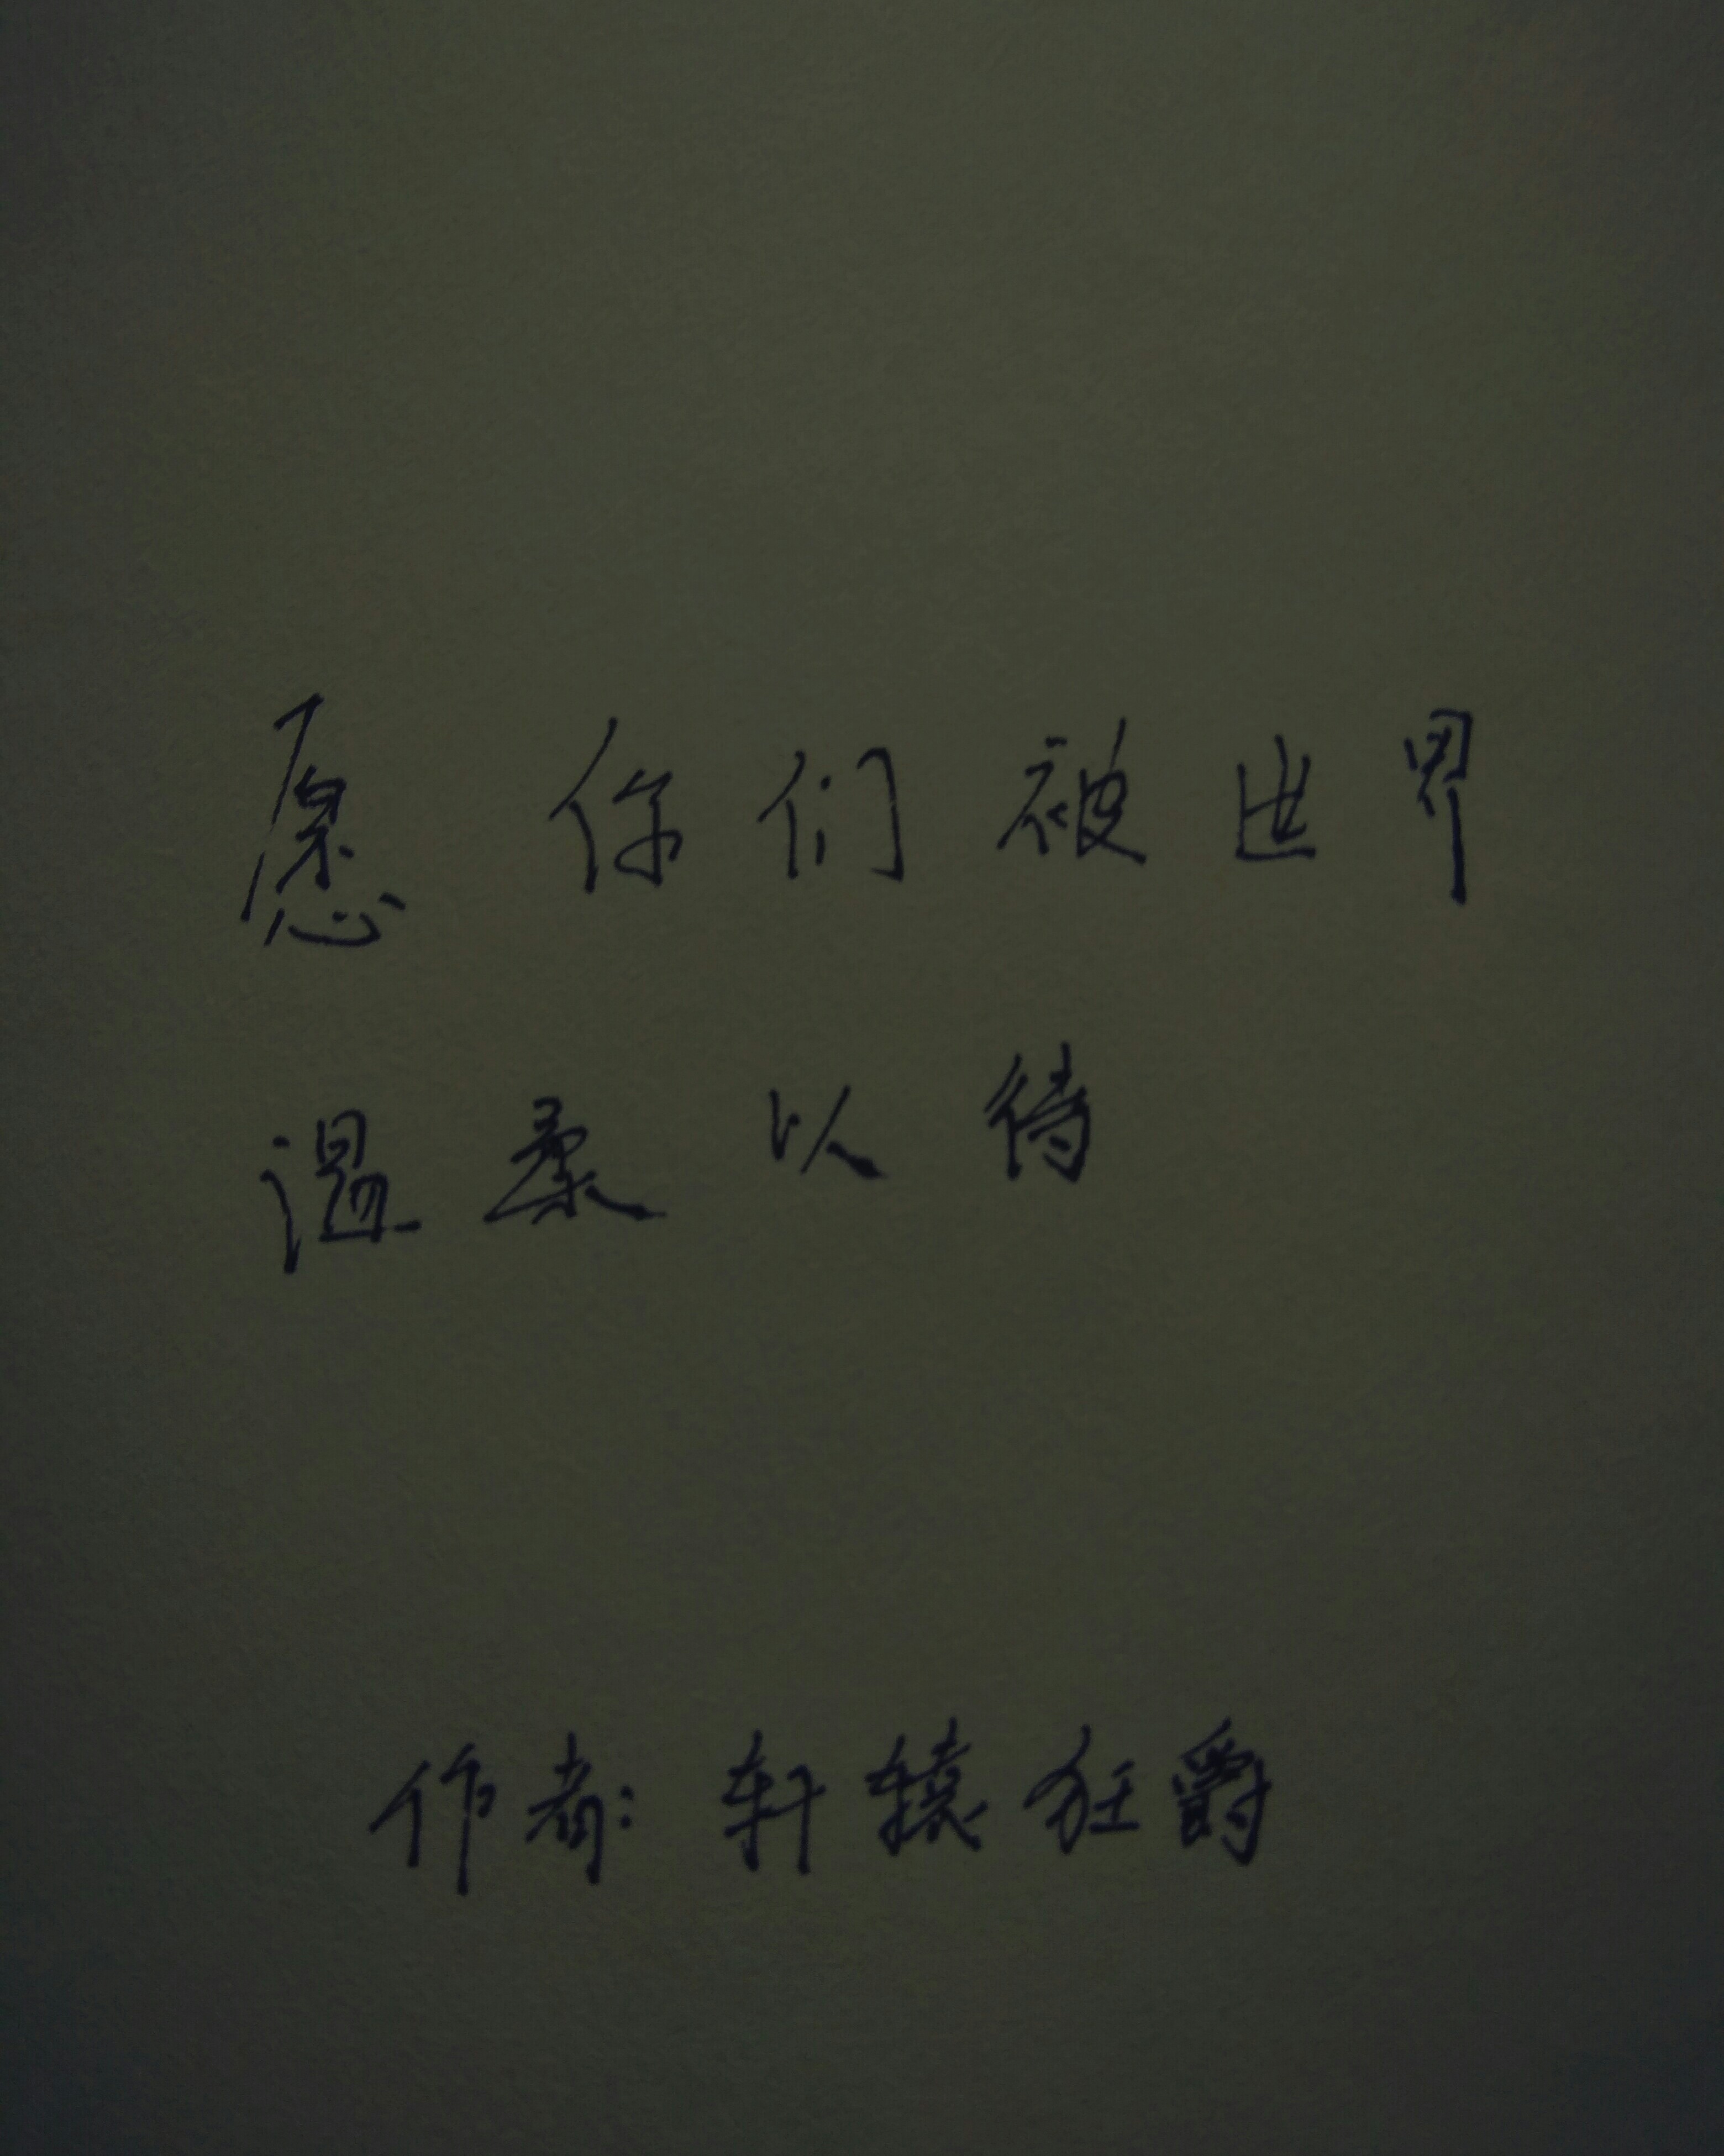 愿你们被世界
温柔以待
作者:轩辕狂爵